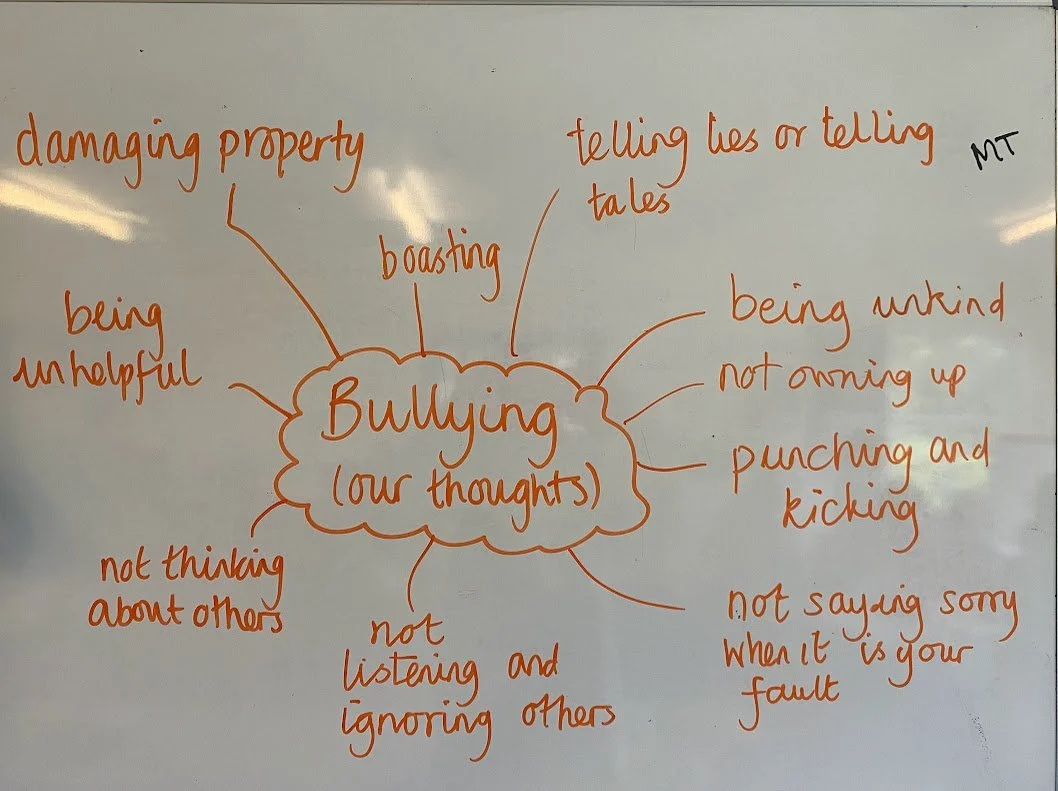 damaging property
telling lies or telling
tales
MT
boasting
being
unhelpful
being unkind
not owning up
Bullying
(our thoughts)
punching and
kicking
not thinking
about others
not
listening and
ignoring others
not saying sorry
when it is your
fault